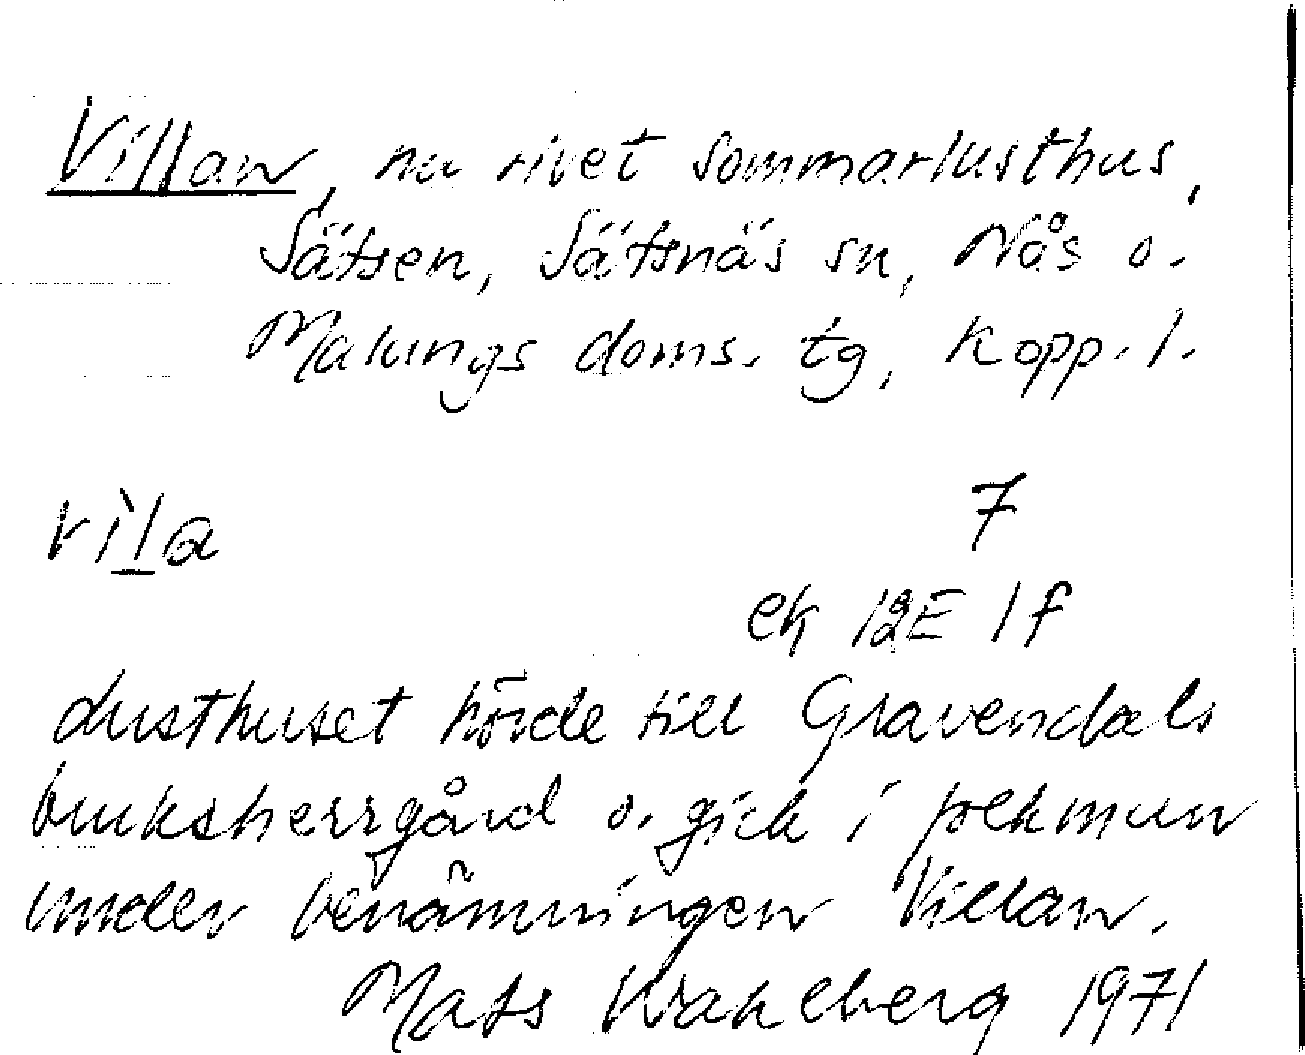 Villan, nu rivet sommarlusthus,
Sätsen, Sätsnäs sn, Nås o.
Malungs doms. tg, Kopp. l.
vìl̲a
7
ek 12E 1f
Lusthuset hörde till Gravendals
bruksherrgård o. gick i folkmun
under benämningen Villan.
Mats Wahlberg 1971